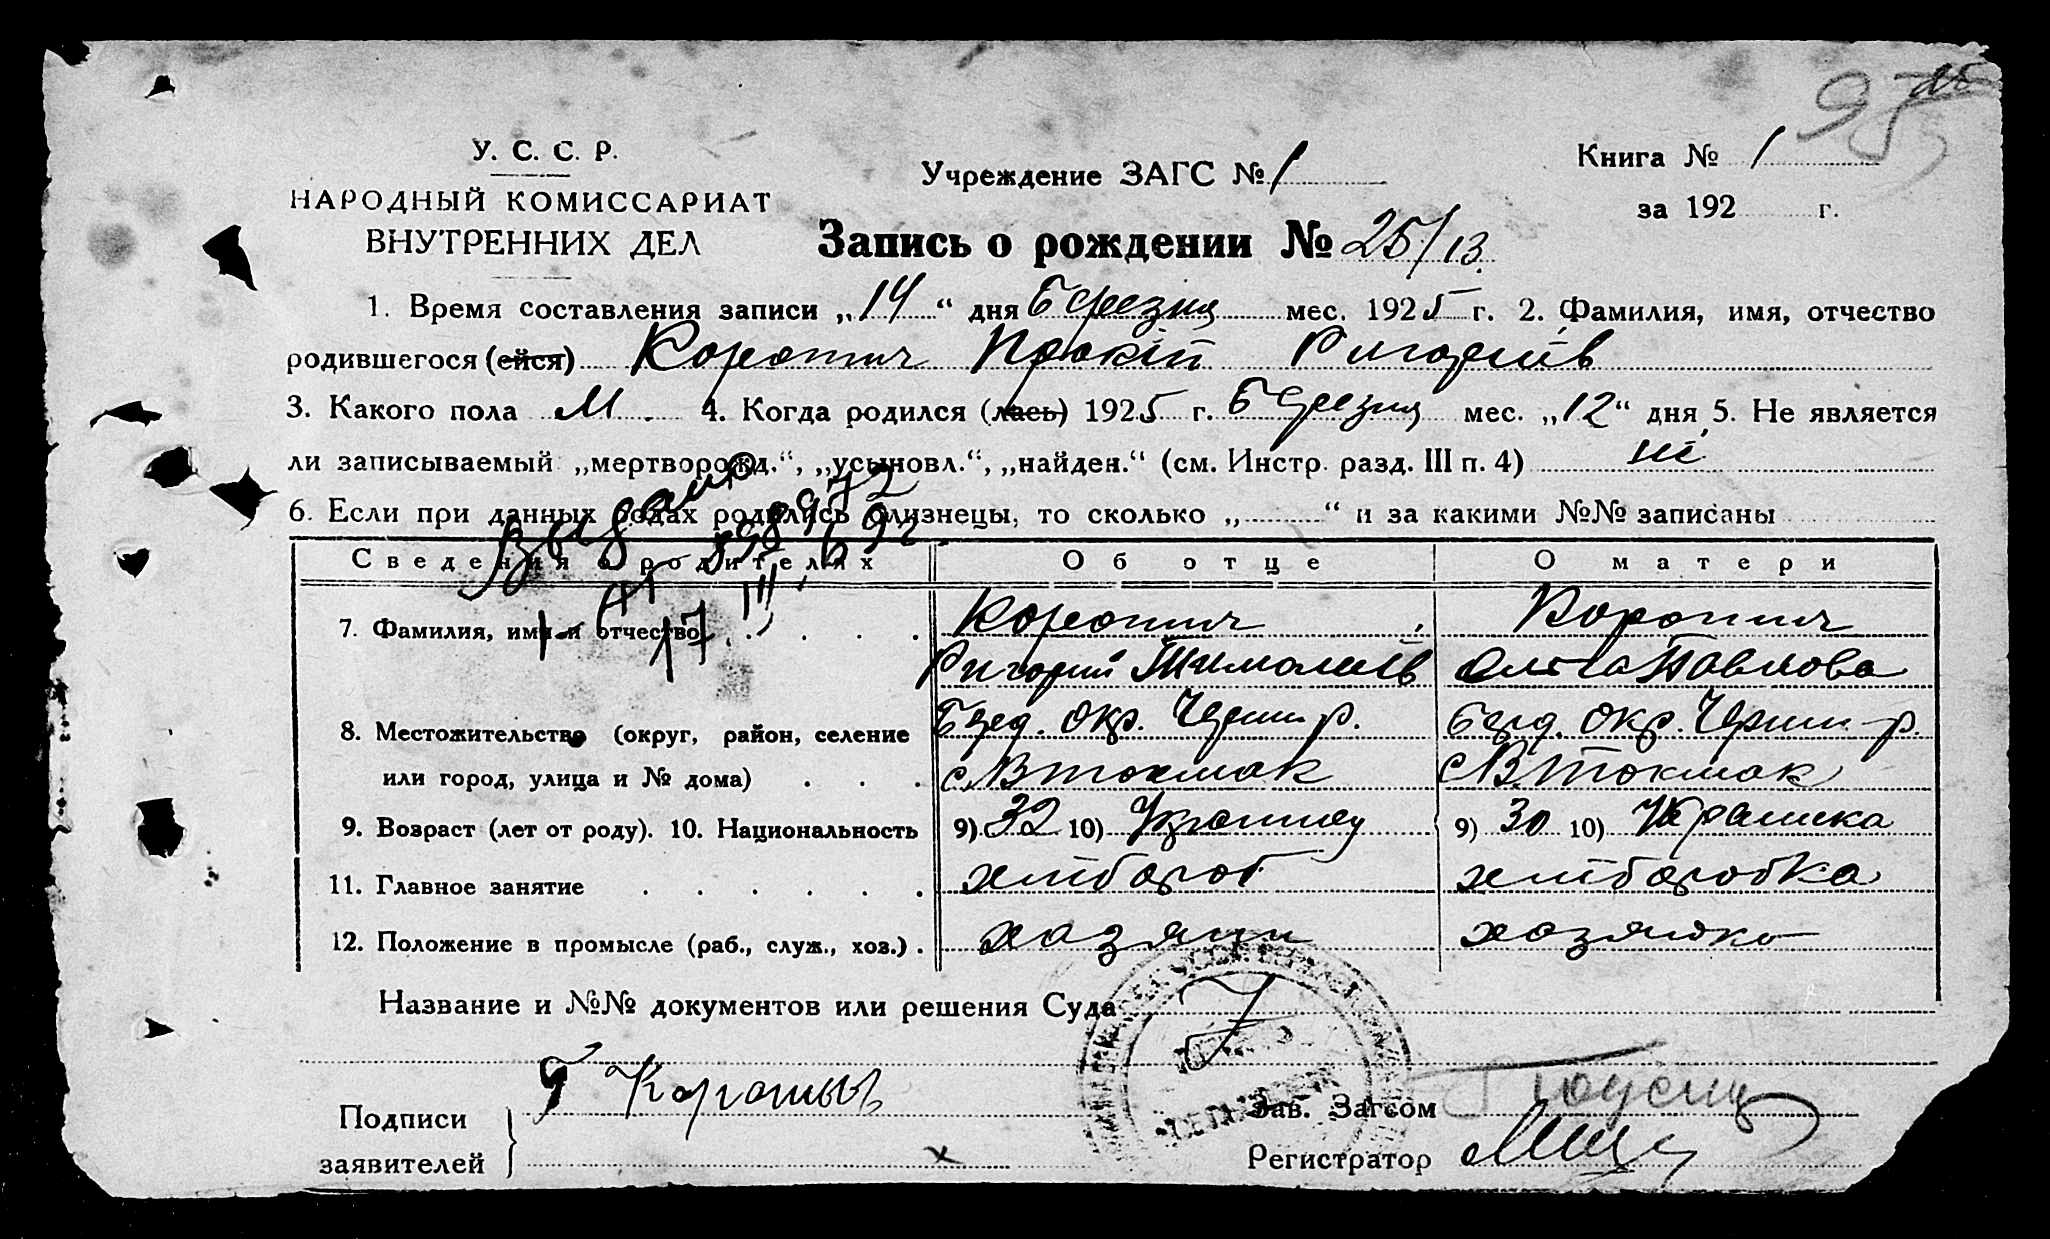 95
У. С. С. Р.
НАРОДНЫЙ КОМИССАРИАТ
ВНУТРЕННИХ ДЕЛ
Учреждение ЗАГС № 1
Книга № 1
за 192 г.
Запись о рождении № 25/13.
1. Время составления записи „14“ дня Березня мес. 1925 г. 2. Фамилия, имя, отчество
родившегося (ейся) Коротич Прокіп Ригоріїв
3. Какого пола М. 4. Когда родился (лась) 1925 г. Березня мес. „12“ дня 5. Не является
ли записываемый „мертворожд.“, „усыновл.“, „найден.“ (см. Инстр. разд. III п. 4) ні
6. Если при данных родах родились близнецы, то сколько „ “ и за какими №№ записаны
Выдано
Сведения о родителях Об отце О матери
7. Фамилия, имя и отчество Коротич Коротич
Ригорий Тимофіїв Олга Павлова
8. Местожительство (округ, район, селение Берд. Окр. Черн. р. Берд. Окр. Черн. р.
или город, улица и № дома) с. В Токмак с. В. Токмак
9. Возраст (лет от роду). 10. Национальность 9) 32 10) Українец 9) 30 10) Українка
11. Главное занятие хлібороб хліборобка
12. Положение в промысле (раб., служ., хоз.) хозяин хозяйка
Название и №№ документов или решения Суда
Подписи
заявителей
Г Коротыч
Зав. Загсом
Регистратор